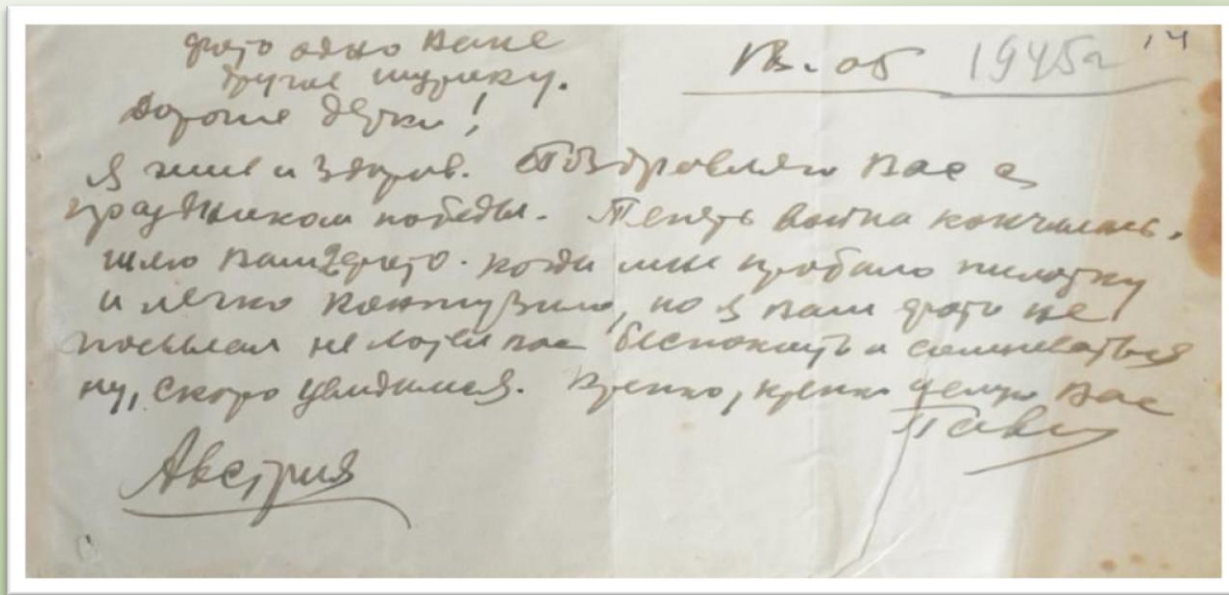 фото одно Ване
другое Шурику.
1945г
14
Дорогие детки!
Я жив и здоров. Поздравляю Вас с
праздником победы. Теперь война кончилась.
шлю Вам 2 фото. когда мне пробило пилотку
и легко контузило, но я вам фото не
посылал не хотел вас беспокоить и
ну, скоро увидимся. Крепко, крепко целую Вас
Павел
Австрия